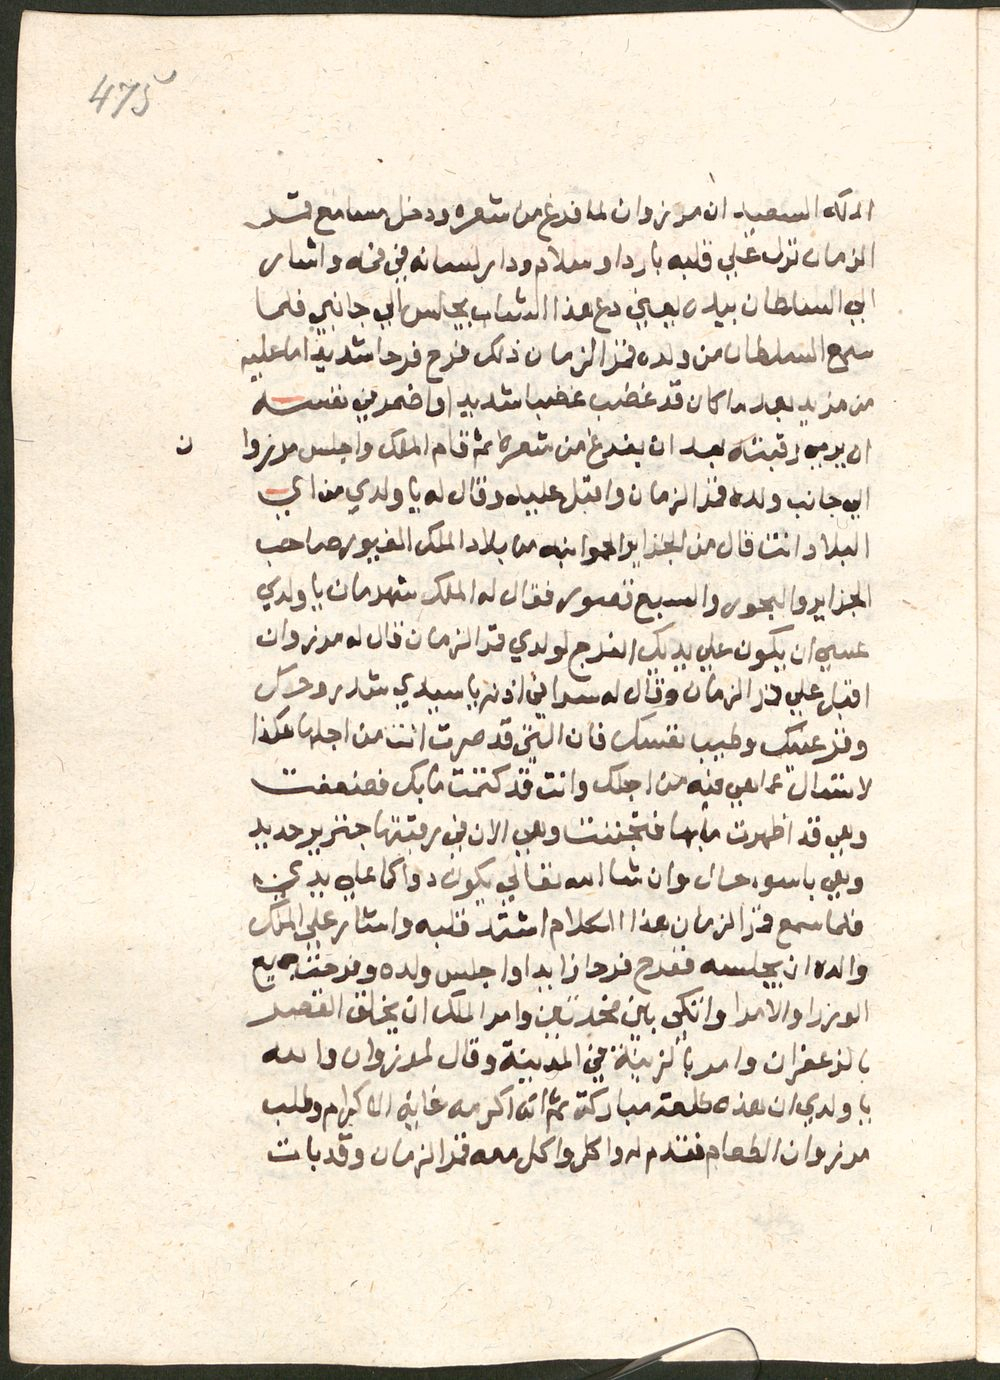 475
الملك السعيد ان مرزوان لما فرغ من شعره ودخل مسامع قمر
الزمان نزل علي قلبه باردا وسلام ودار لسانه في فمه واشار
الي السلطان بيده يعيني دع هذا الشاب يجلس الي جانبي فلما
سمع السلطان من ولده قمر الزمان ذلك فرح فرحا شديدا ما عليه
من مزيد بعد ما كان قد غضب غضبا شديدا واضمر في نفسه
ان يرمي رقبته بعد ان يفرغ من شعره ثم قام الملك واجلس مرزوا
ن
الي جانب ولده قمر الزمان واقبل عليه وقال له يا ولدي من اي
البلاد انت قال من الجزاير الجوانيه من بلاد الملك الغيور صاحب
الجزاير والبحور والسبع قصور فقال له الملك شهرمان يا ولدي
عسي ان يكون علي يديك الفرج لولدي قمر الزمان قال له مرزوان
اقبل علي قمر الزمان وقال له سرا في اذنه يا سيدي شد روحك
وقر عينك وطيب نفسك فان التي قد صرت انت من اجلها هكذا
لا تسال عما هي فيه من اجلك وانت قد كتمت ما بك فضعفت
وهي قد اظهرت ما بها فتجننت وهي الان في رقبتها جنزير حديد
وهي باسوء حال وان شا الله تعالي يكون دواكما علي يدي
فلما سمع قمر الزمان هذا الكلام اشتد قلبه واشار علي الملك
والده ان يجلسه ففرح فرحا زايدا واجلس ولده وفرحت جميع
الوزرا والامرا واتكي بين مخدتين وامر الملك ان يخلق القصر
بالزعفران وامر بالزينة في المدينة وقال لمرزوان والله
يا ولدي ان هذه طلعة مباركة ثم انه اكرمه غاية الاكرام وطلب
مرزوان الطعام فقدم له واكل واكل معه قمر الزمان وقد بات